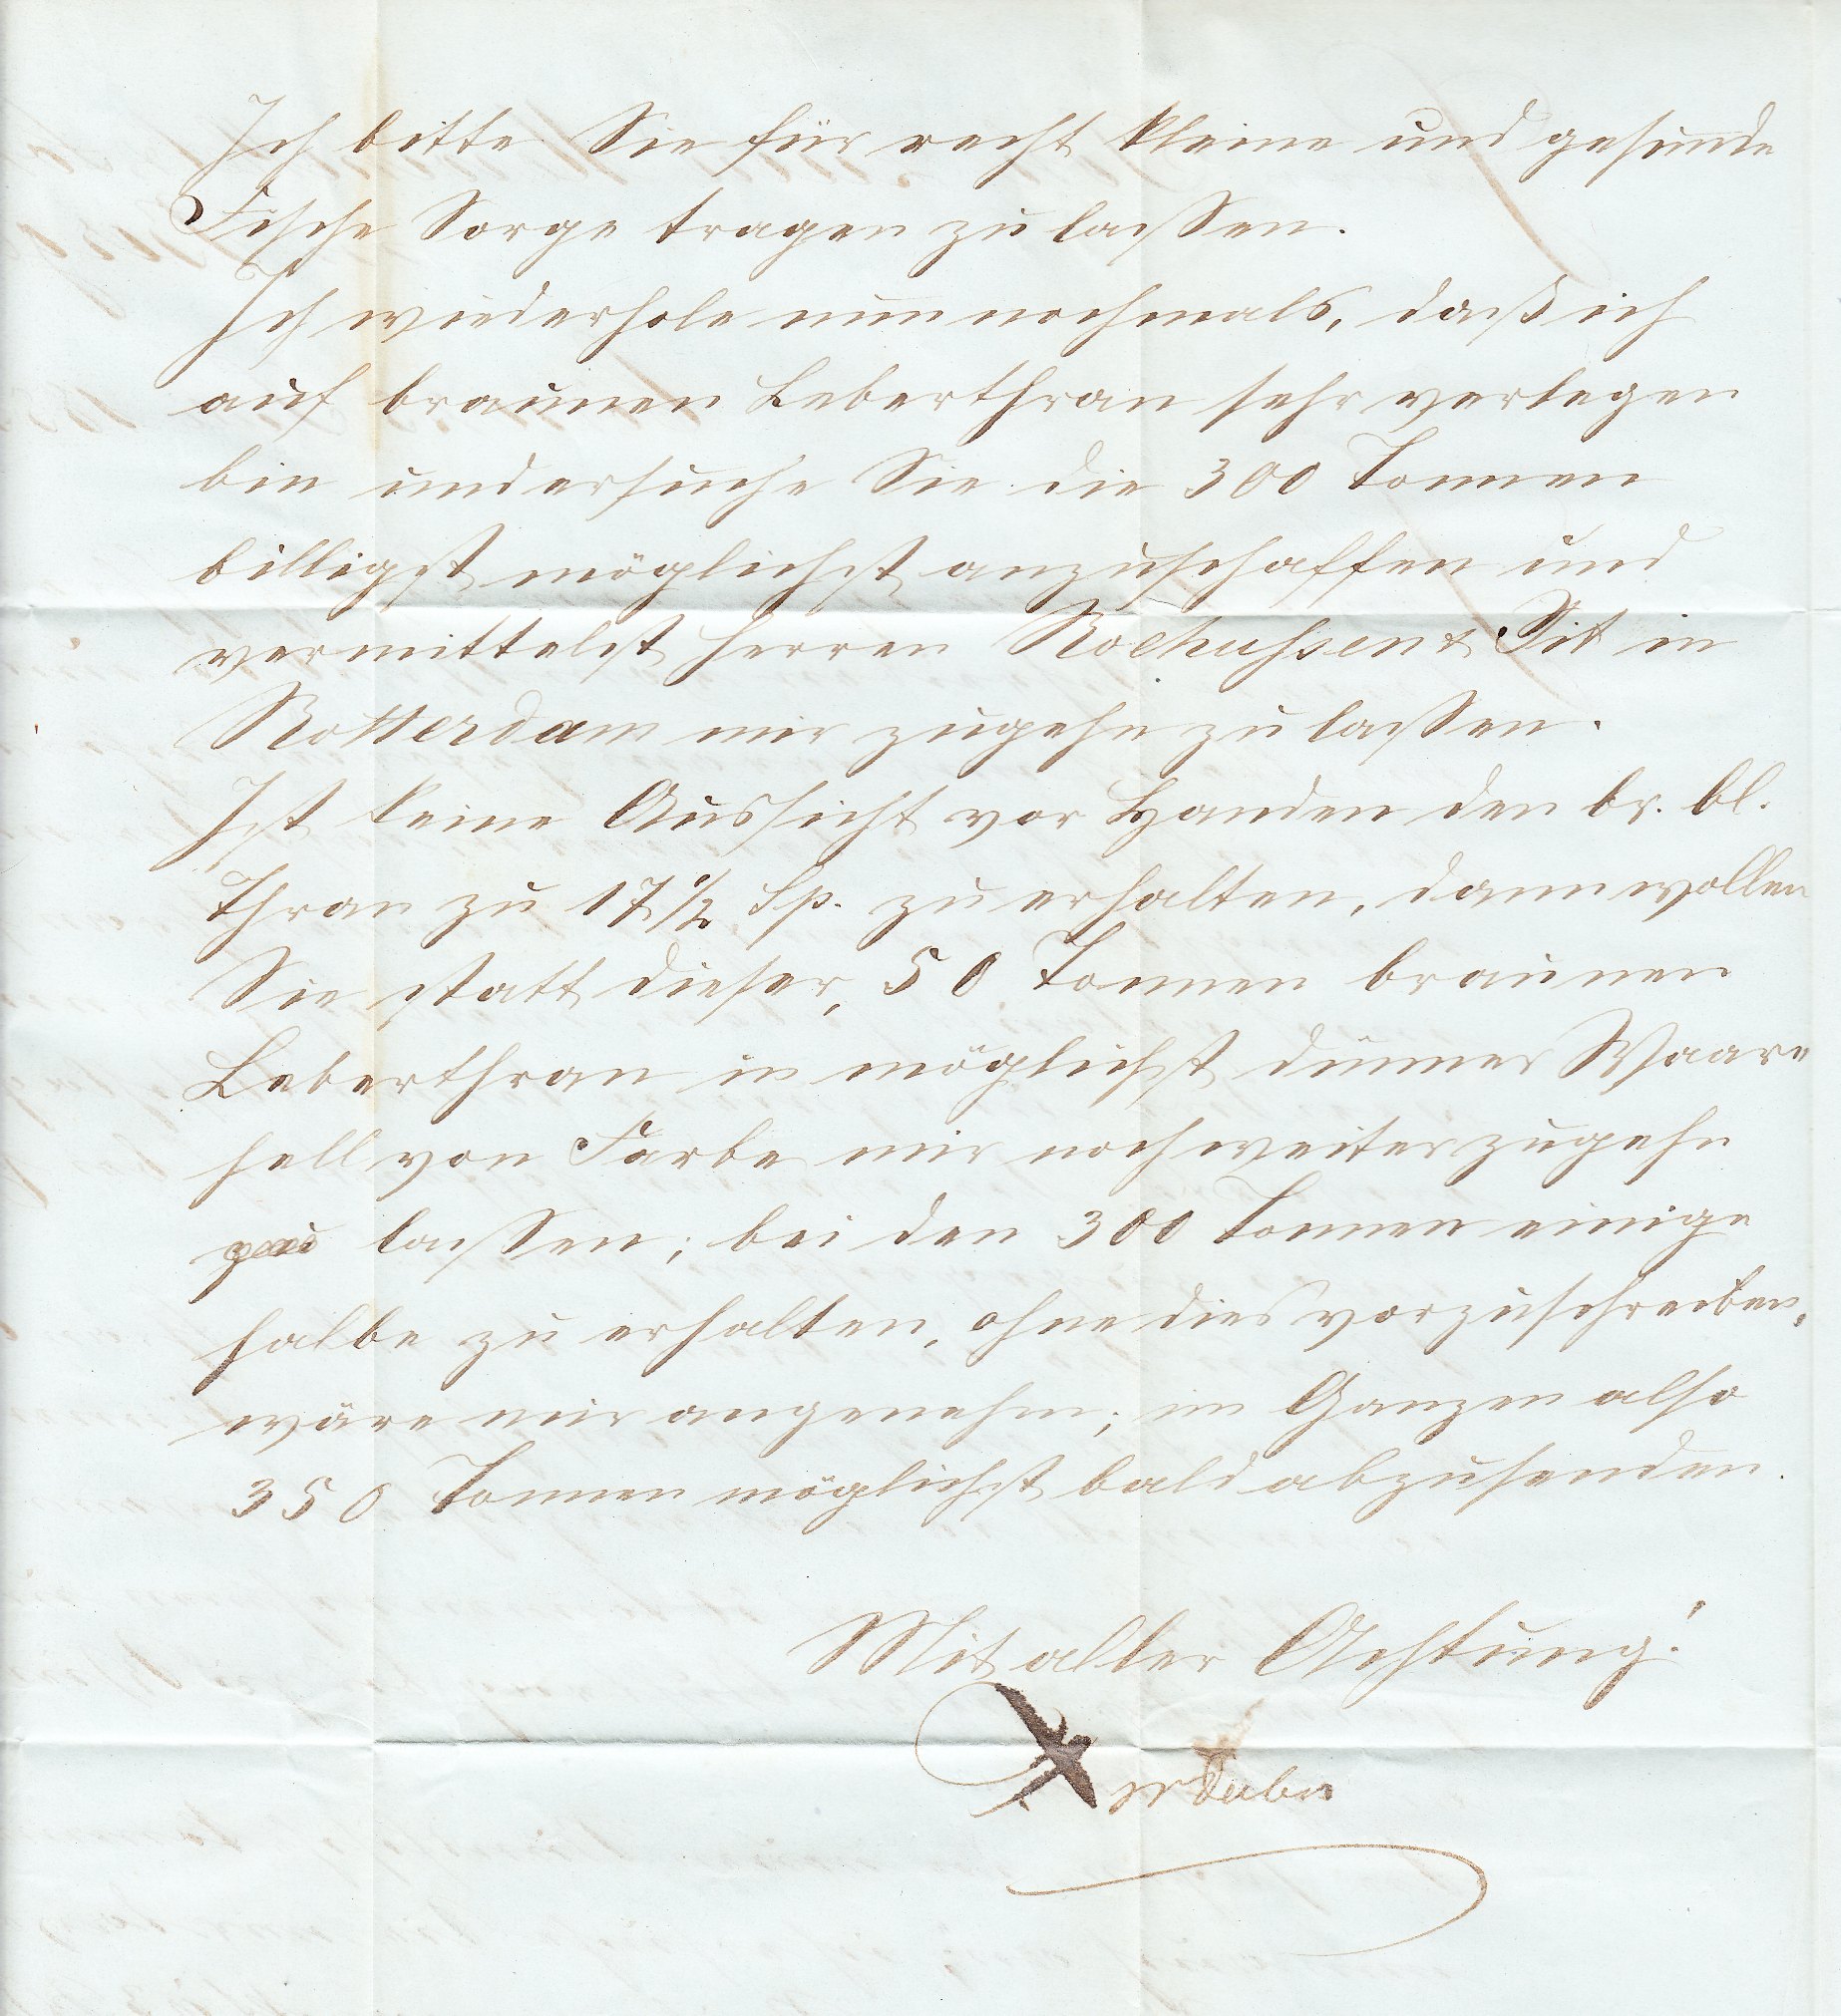 Ich bitte Sie für recht kleine und gesunde
Fische Sorge tragen zu lassen.
Ich wiederhole nun nochmals, daß ich
auf braunen Leberthran sehr verlegen
bin und ersuche Sie die 300 Tonnen
billigst möglichst anzuschaffen und
vermittelst Herren Rochussen & in
Rotterdam mir zugehn zu lassen.
Ist keine Aussicht vor Handen den br. bl.
Thran zu 17 1/2 Sp. zu erhalten, dann wollen
Sie statt dieser, 50 Tonnen braunen
Leberthran in möglichst dünner Waare
hell von Farbe mir noch weiter zugehn
lassen; bei den 300 Tonnen einige
halbe zu erhalten, ohne dies vorzuschreiben,
wäre mir angenehm; im Ganzen also
350 Tonnen möglichst bald abzusenden.
Mit aller Achtung!